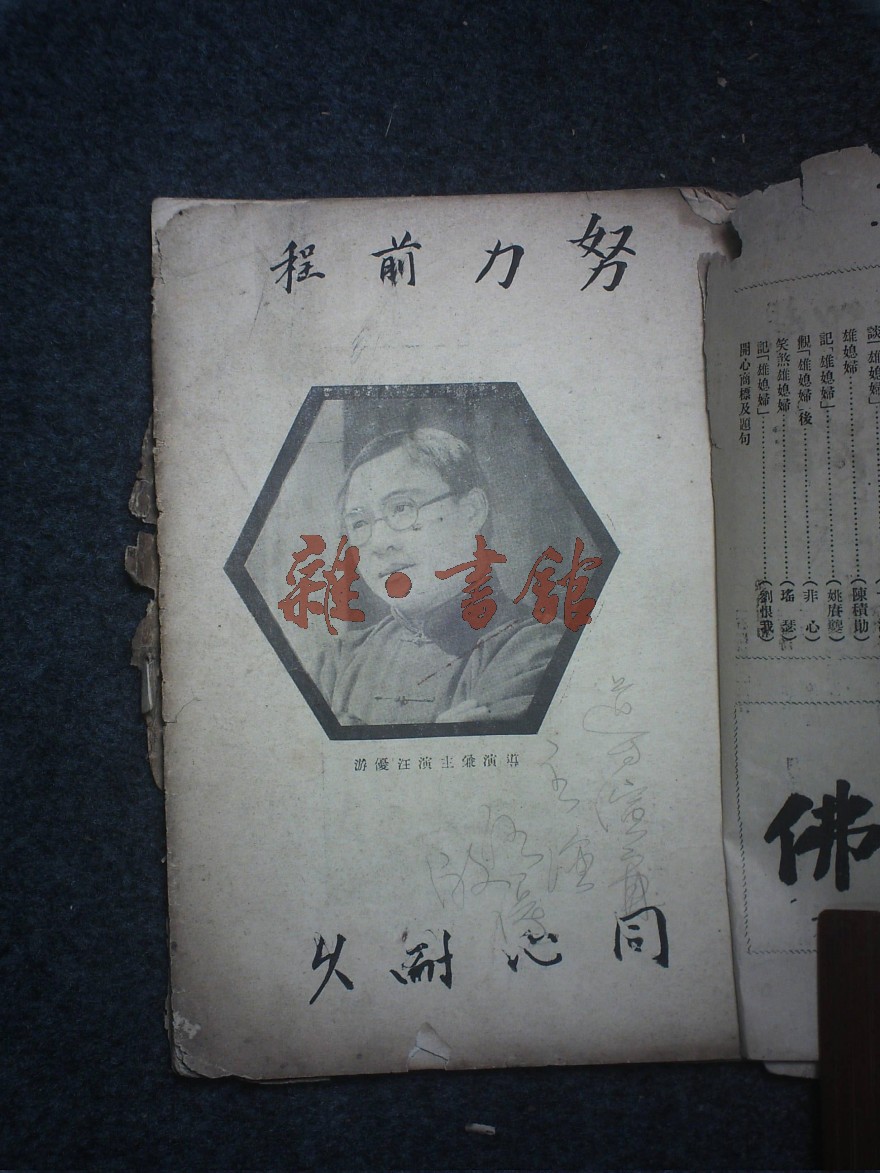 努力前程
雜·書館
導演兼主演汪優游
同心耐久
談「雄媳婦」
雄媳婦……（陳積勛）
記「雄媳婦」……（姚賡夔）
觀「雄媳婦」後……（非心）
笑煞雄媳婦……（瑤瑟）
記「雄媳婦」……（劉恨我）
開心商標及題句
佛